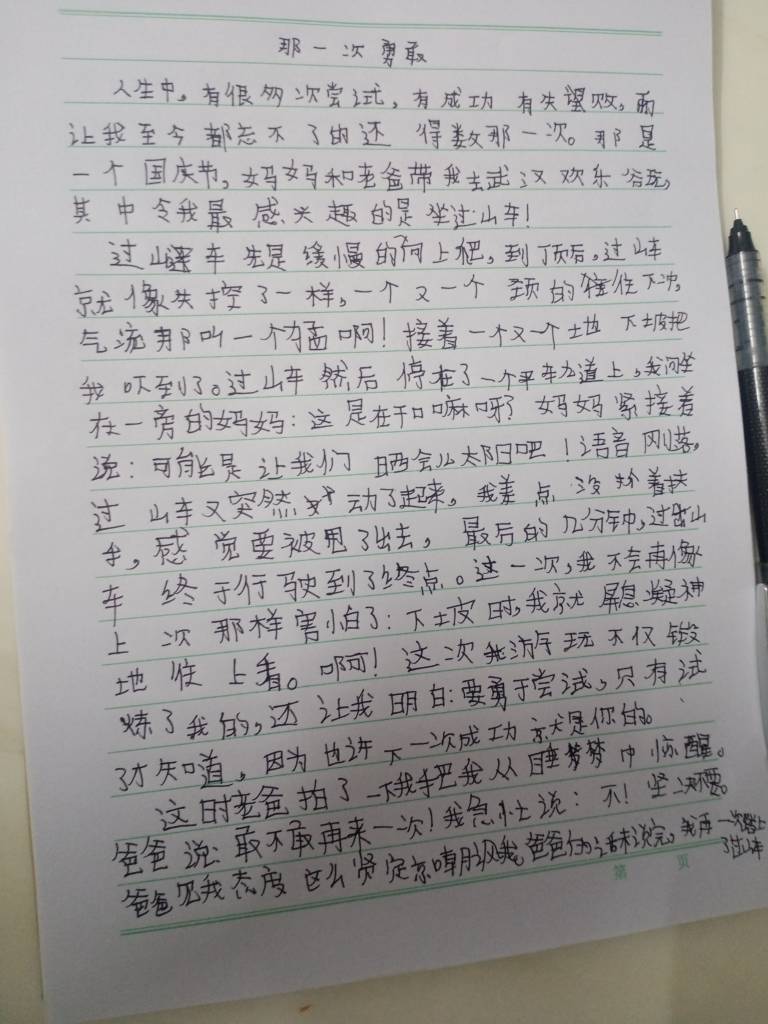 那一次勇敢
人生中，有很多次尝试，有成功 有失望败，而
让我至今都忘不了的还得数那一次。那是
一个国庆节，妈妈和老爸带我去武汉欢乐谷玩，
其中令我最感兴趣的是坐过山车！
过山车先是缓慢的向上爬，到顶后，过山车
就像失控了一样，一个又一个 的往下冲，
气流那叫一个猛啊！接着一个又一个土地下坡把
我吓到了。过山车然后停在了一个平车道上，我问坐
在一旁的妈妈：这是在干嘛呀？妈妈紧接着
说：可能是让我们晒会儿太阳吧！语音刚落，
过山车又突然 动了起来。我差点没 着扶
手，感觉要被甩了出去，最后的几分钟，过山
车终于行驶到了终点。这一次，我不会再像
上次那样害怕了：下坡时，我就屏息凝神
地往上看。啊！这次我游玩不仅锻
炼了我的，还让我明白：要勇于尝试，只有试
了才知道，因为也许下一次成功就是你的。
这时老爸拍了一下我手把我从睡梦梦中惊醒。
爸爸说：敢不敢再来一次！我急忙说：不！坚决不要。
爸爸见我态度这么坚定 我，爸爸的话未说完，我再一次踏上
了过山车
第 页